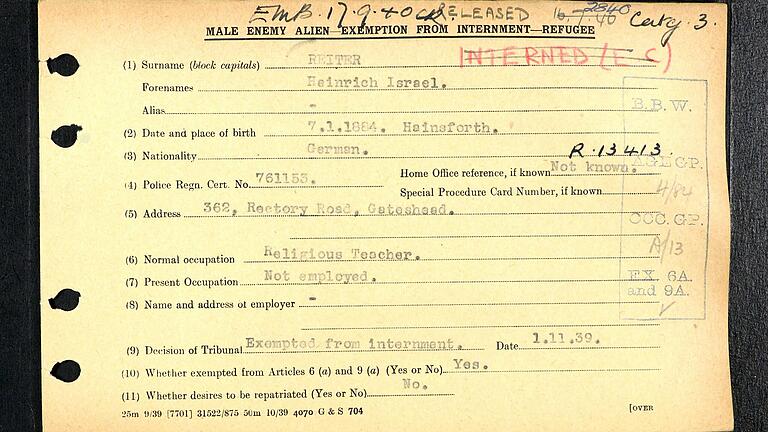 EMB. 17.9.40 RELEASED 16.7.40 2840 Catg. 3.
MALE ENEMY ALIEN—EXEMPTION FROM INTERNMENT—REFUGEE
INTERNED (E C)
(1) Surname (block capitals) REITER
Forenames Heinrich Israel.
B.B.W.
Alias -
(2) Date and place of birth 7.1.1884. Hainsforth.
(3) Nationality German.
R.13413.
AGE GP.
(4) Police Regn. Cert. No. 761153. Home Office reference, if known Not known.
4/84
Special Procedure Card Number, if known
(5) Address 362, Rectory Road, Gateshead.
OCC. GP.
A/13
(6) Normal occupation Religious Teacher.
(7) Present Occupation Not employed.
EX 6A
and 9A.
(8) Name and address of employer -
(9) Decision of Tribunal Exempted from internment. Date 1.11.39.
(10) Whether exempted from Articles 6 (a) and 9 (a) (Yes or No) Yes.
(11) Whether desires to be repatriated (Yes or No) No.
25m 9/39 [7701] 31522/875 50m 10/39 4070 G & S 704 [OVER